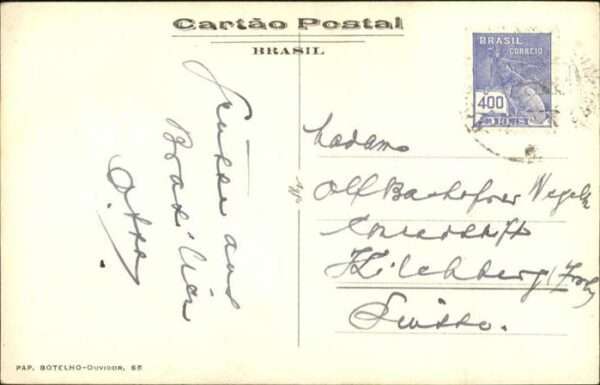 Cartão Postal
BRASIL
BRASIL
CORREIO
400
RÉIS
Grüsse aus
Brasilien
Otto
Madame
Alf Bachofner Wegelin
Kilchberg (Zch)
Suisse.
PAP. BOTELHO-OUVIDOR, 65